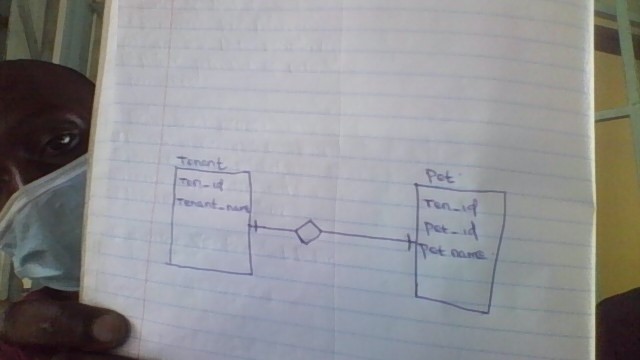 Tenant
Ten_id
Tenant_name
Pet
Ten_id
pet_id
pet name